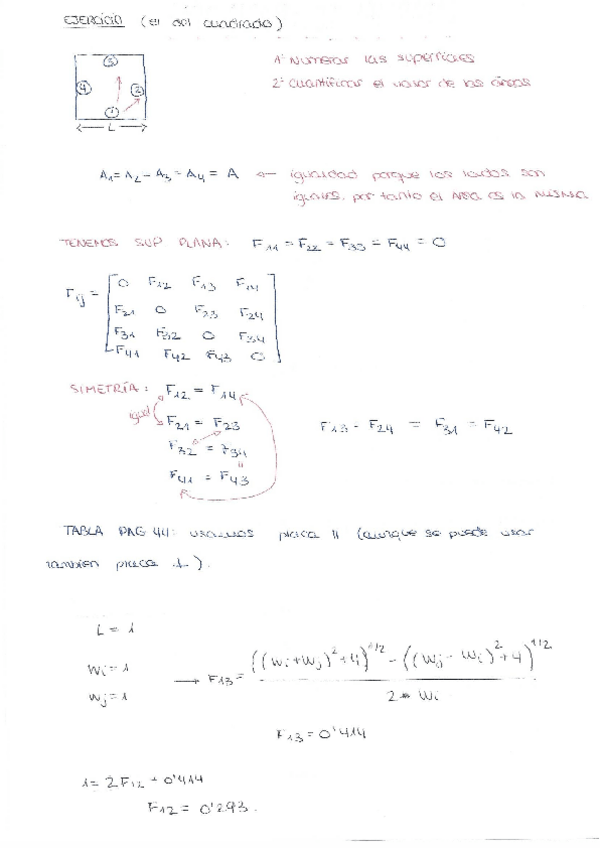 EJERCICIO (el del cuadrado)
1º Numerar las superficies
2º Cuantificar el valor de las áreas
3
4
2
1
L
A₁ = A₂ - A₃ = A₄ = A ← igualdad porque los lados son
iguales, por tanto el área es la misma
TENEMOS SUP PLANA: F₁₁ = F₂₂ = F₃₃ = F₄₄ = 0
Fij = [0 F₁₂ F₁₃ F₁₄
F₂₁ 0 F₂₃ F₂₄
F₃₁ F₃₂ 0 F₃₄
F₄₁ F₄₂ F₄₃ 0]
SIMETRÍA: F₁₂ = F₁₄
igual F₂₁ = F₂₃
F₃₂ = F₃₄
F₄₁ = F₄₃
F₁₃ - F₂₄ = F₃₁ = F₄₂
TABLA PAG 44: usamos placa || (aunque se puede usar
tambien placa ⊥).
L = 1
Wi = 1
Wj = 1
→ F₁₃ = (((Wi+Wj)²+4)^1/2 - ((Wj - Wi)²+4)^1/2) / (2 * Wi)
F₁₃ = 0'414
1 = 2F₁₂ + 0'414
F₁₂ = 0'293.